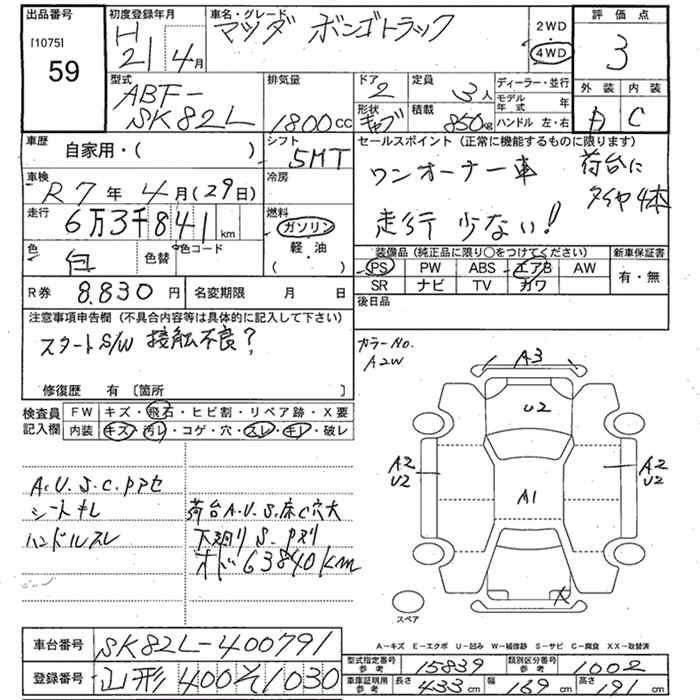 出品番号
[1075]
59
初度登録年月
H
21年4月
車名・グレード
マツダ ボンゴトラック
2WD
4WD
評価点
3
外装 内装
C
型式
ABF-
SK82L
排気量
1800cc
ドア
2
定員
3人
形状
キャブ
積載
850kg
ディーラー・並行
モデル年式 年
ハンドル 左・右
車歴
自家用・( )
シフト
5MT
車検
R7年4月(29日)
冷房
走行
6万3千841km
燃料
ガソリン
軽・油
( )
色
白
色替
色コード
R券 8,830円
名変期限 月 日
セールスポイント(正常に機能するものに限ります)
ワンオーナー車 荷台に
タイヤ4本
走行 少ない!
装備品(純正品に限り○をつけてください)
新車保証書
PS PW ABS エアB AW
SR ナビ TV カワ
有・無
後日品
注意事項申告欄(不具合内容等は具体的に記入して下さい)
スタートS/W 接触不良?
修復歴 有〔箇所 〕
カラーNo.
A2W
検査員
記入欄
FW キズ・飛石・ヒビ割・リペア跡・X要
内装 キズ・汚レ・コゲ・穴・スレ・キレ・破レ
A.U.S.C.アアセ
シートキレ
ハンドルスレ
荷台A.U.S.床C穴大
下廻りS.アリ
オド63840km
A3
U2
A2
U2
A1
A2
U2
X
スペア
A-キズ E-エクボ U-凹み W-補修跡 S-サビ C-腐食 XX-取替済
車台番号 SK82L-400791
登録番号 山形400そ1030
型式指定番号
参考
15839
類別区分番号
参考
1002
車庫証明用
参考
長さ 433cm
幅 169cm
高さ 191cm